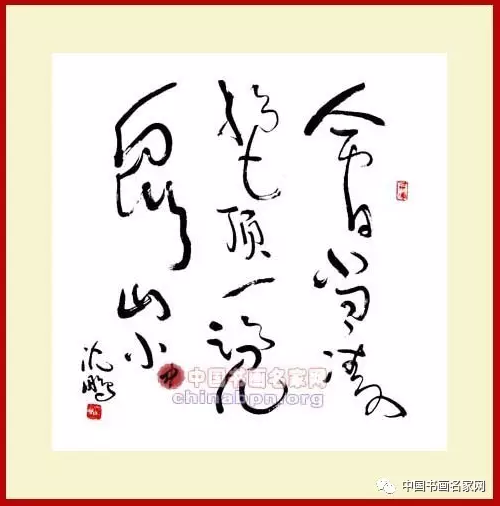 會當凌
絕頂一覽
眾山小
沈鵬
中国书画名家网
chinabpn.org
中国书画名家网